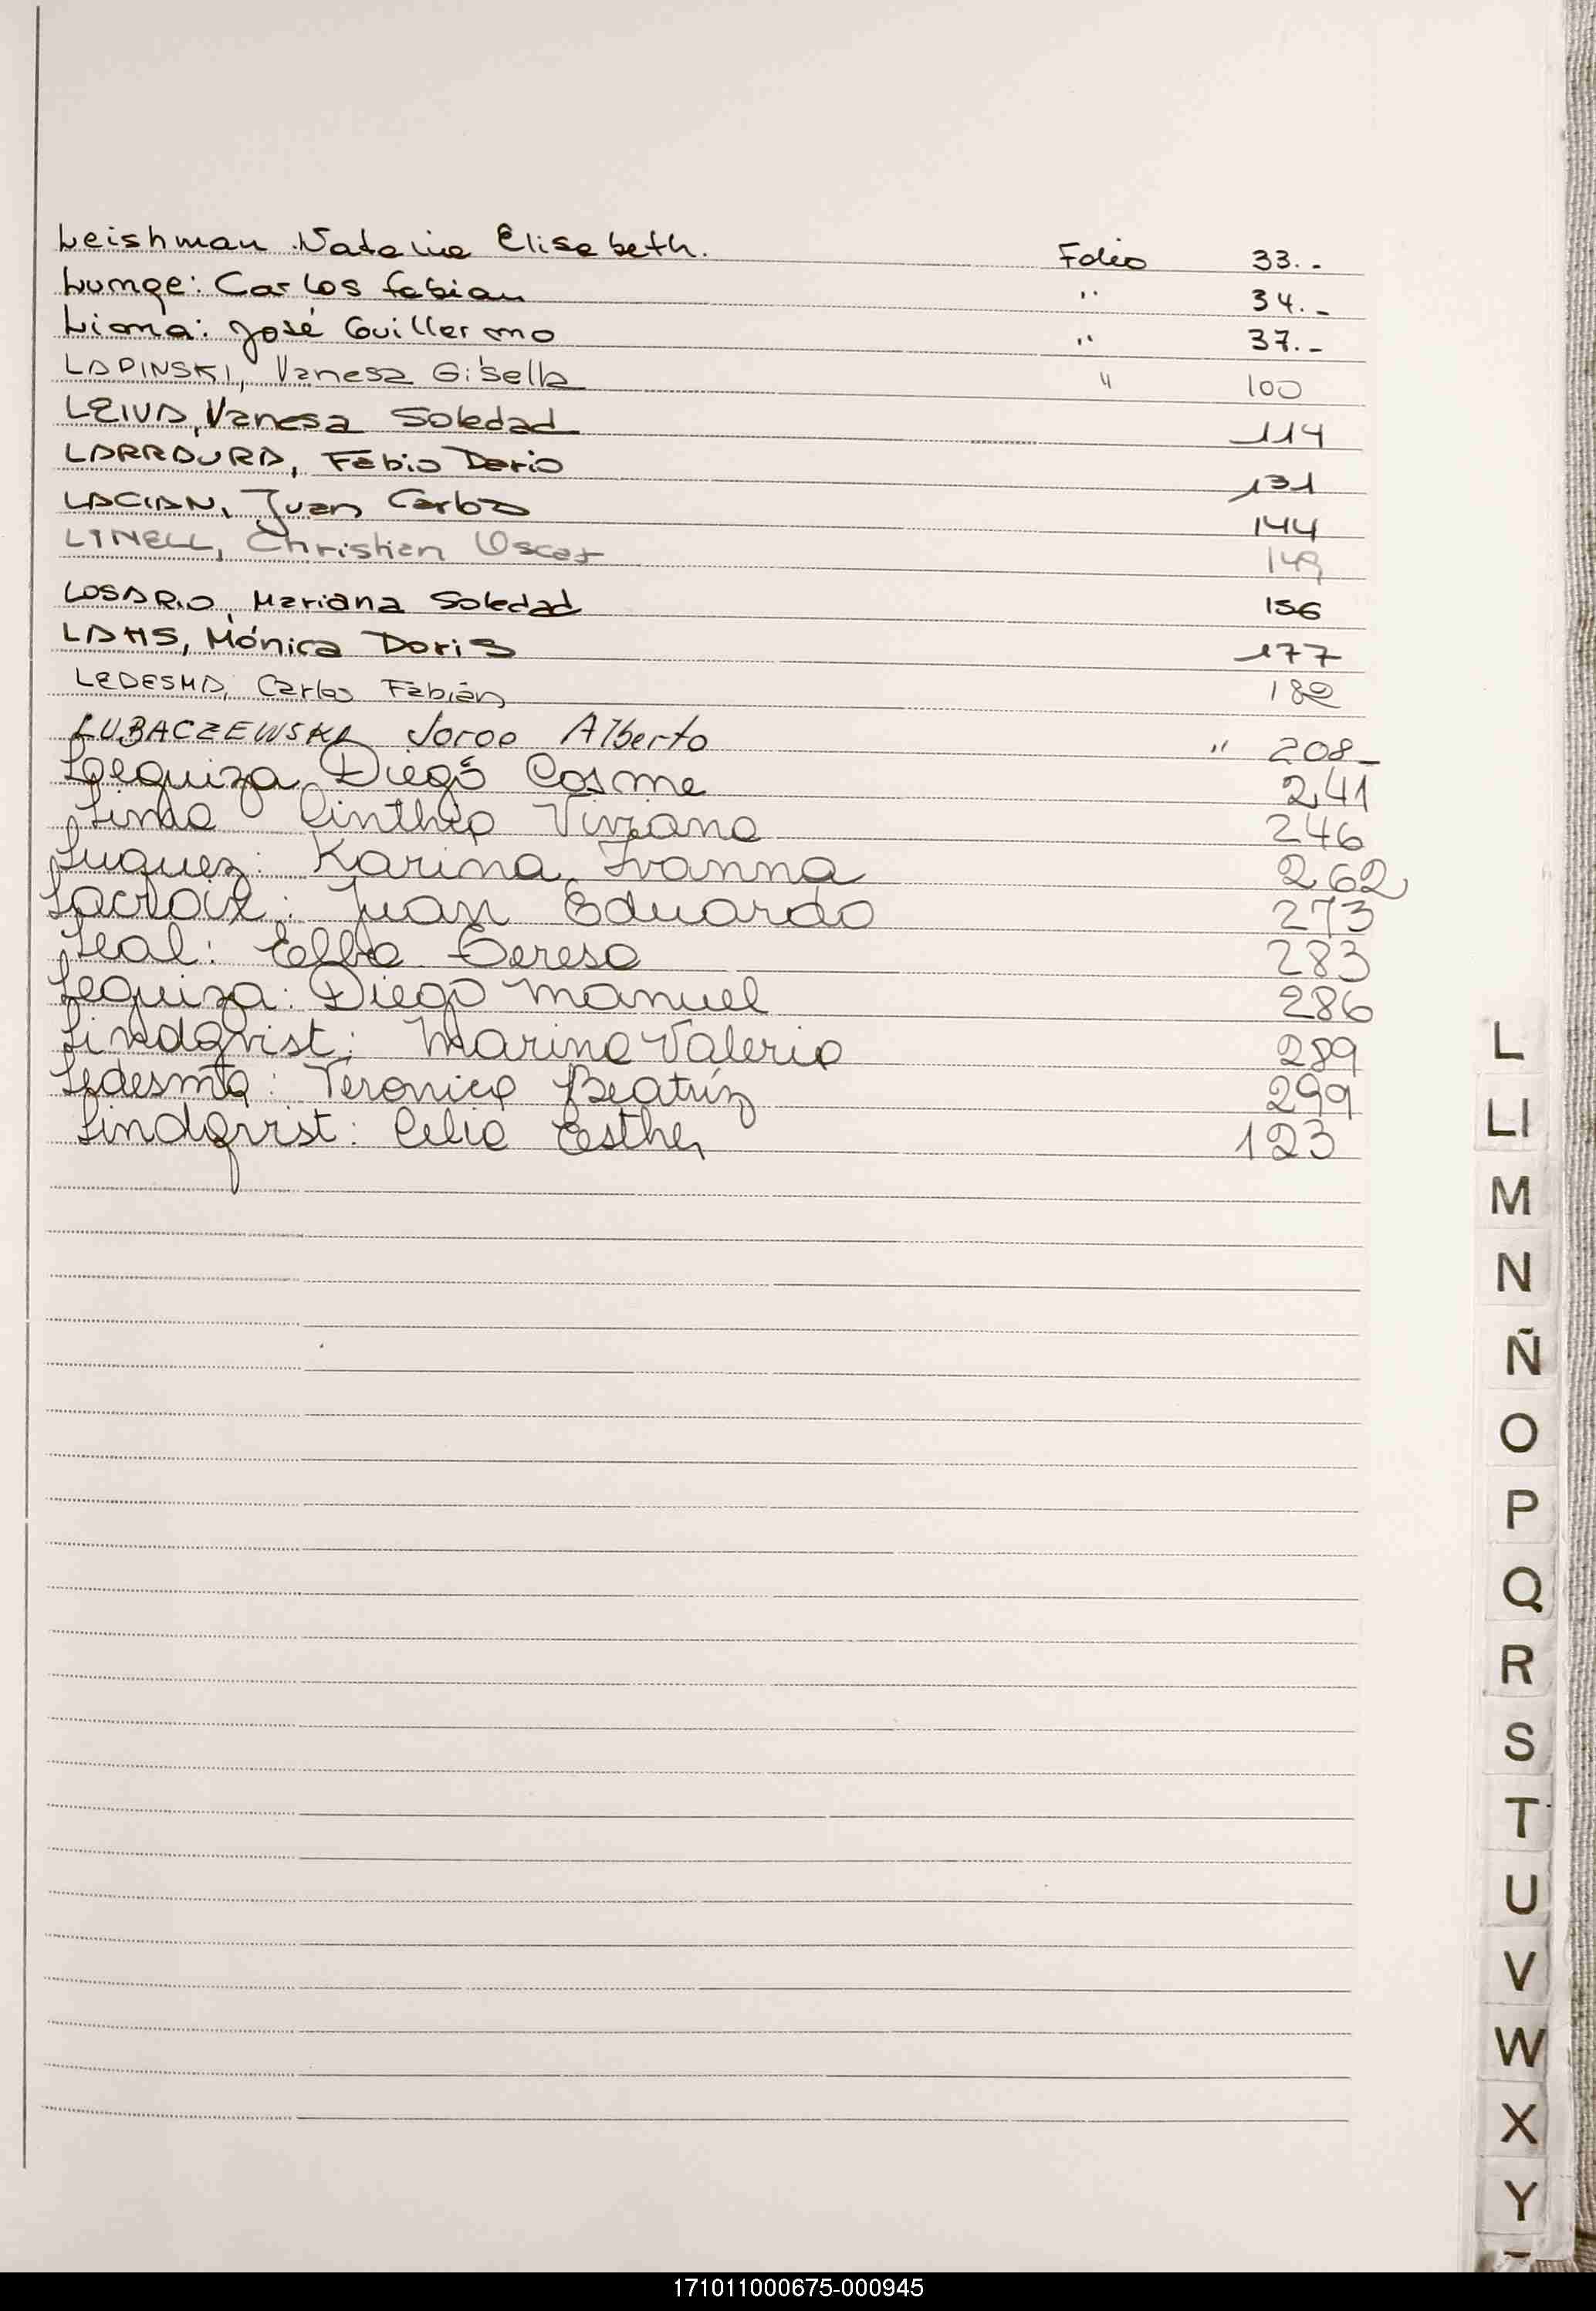 Leishman Natalia Elisabeth. Folio 33.-
Lumge: Carlos fabian " 34.-
Liona: José Guillermo " 37.-
LAPINSKI, Vanesa Gisella " 100
LEIVA, Vanesa Soledad 114
LARRAURA, Fabio Dario 131
LACIAN, Juan Carlos 144
LINELL, Christian Oscar 149
LOSARIO, Mariana Soledad 156
LAHS, Mónica Doris 177
LEDESMA, Carlos Fabián 182
LUBACZEWSKI Jorge Alberto " 208-
Leguiza Diego Cosme 241
Lima Cinthia Viviana 246
Luquez: Karina Ivanna 262
Lacroix: Juan Eduardo 273
Leal: Elba Teresa 283
Leguiza: Diego Manuel 286
Lindqvist: Marina Valeria 289
Ledesma: Veronica Beatríz 299
Lindqvist: Celia Esther 123
L
LI
M
N
Ñ
O
P
Q
R
S
T
U
V
W
X
Y
171011000675-000945